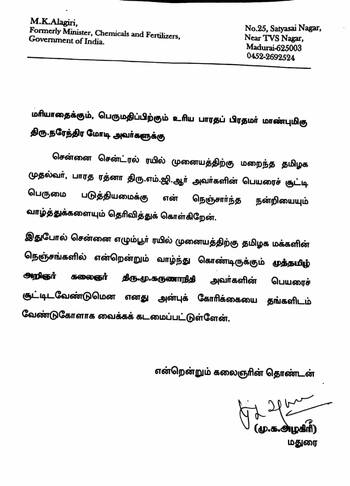 M.K.Alagiri,
Formerly Minister, Chemicals and Fertilizers,
Government of India.
No.25, Satyasai Nagar,
Near TVS Nagar,
Madurai-625003
0452-2692524
மரியாதைக்கும், பெருமதிப்பிற்கும் உரிய பாரதப் பிரதமர் மாண்புமிகு
திரு.நரேந்திர மோடி அவர்களுக்கு
சென்னை சென்ட்ரல் ரயில் முனையத்திற்கு மறைந்த தமிழக
முதல்வர், பாரத ரத்னா திரு.எம்.ஜி.ஆர் அவர்களின் பெயரைச் சூட்டி
பெருமை படுத்தியமைக்கு என் நெஞ்சார்ந்த நன்றியையும்
வாழ்த்துக்களையும் தெரிவித்துக் கொள்கிறேன்.
இதுபோல் சென்னை எழும்பூர் ரயில் முனையத்திற்கு தமிழக மக்களின்
நெஞ்சங்களில் என்றென்றும் வாழ்ந்து கொண்டிருக்கும் முத்தமிழ்
அறிஞர் கலைஞர் திரு.மு.கருணாநிதி அவர்களின் பெயரைச்
சூட்டிடவேண்டுமென எனது அன்புக் கோரிக்கையை தங்களிடம்
வேண்டுகோளாக வைக்கக் கடமைப்பட்டுள்ளேன்.
என்றென்றும் கலைஞரின் தொண்டன்
(மு.க.அழகிரி)
மதுரை